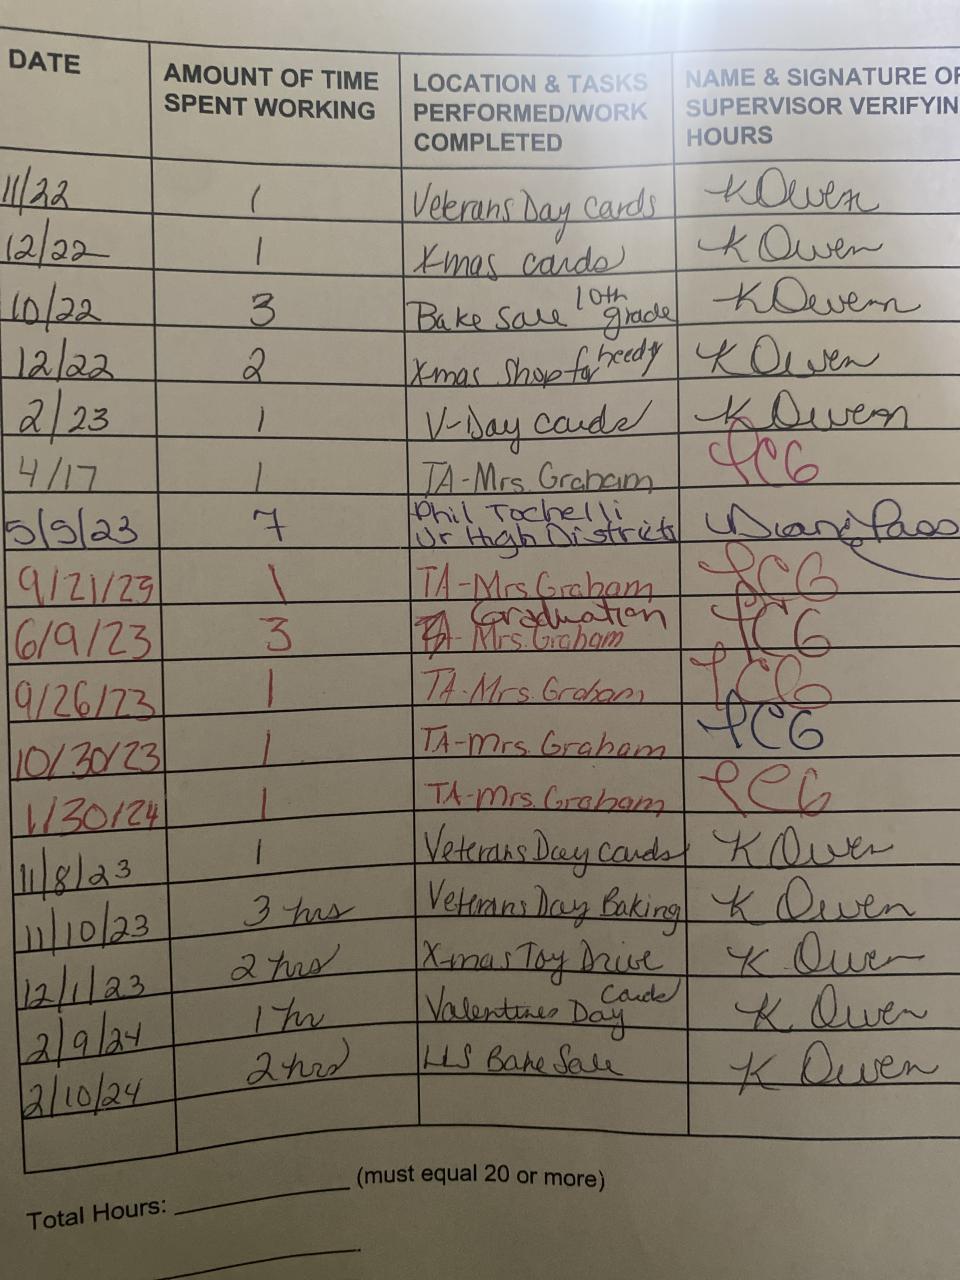 DATE
AMOUNT OF TIME
SPENT WORKING
LOCATION & TASKS
PERFORMED/WORK
COMPLETED
NAME & SIGNATURE OF
SUPERVISOR VERIFYIN
HOURS
11/22 1 Veterans Day Cards K Owen
12/22 1 X-mas cards K Owen
10/22 3 Bake Sale 10th grade K Owen
12/22 2 X-mas Shop for needy K Owen
2/23 1 V-Day cards K Owen
4/17 1 TA-Mrs. Graham
5/9/23 7 Phil Tochelli
Jr High Districts
9/21/23 1 TA-Mrs. Graham
6/9/23 3 Graduation
Mrs. Graham
9/26/23 1 TA-Mrs. Graham
10/30/23 1 TA-Mrs. Graham
1/30/24 1 TA-Mrs. Graham
11/8/23 1 Veterans Day cards K Owen
11/10/23 3 hrs Veterans Day Baking K Owen
12/1/23 2 hrs X-mas Toy Drive K Owen
2/9/24 1 hr Valentines Day Cards K Owen
2/10/24 2 hrs Bake Sale K Owen
(must equal 20 or more)
Total Hours: